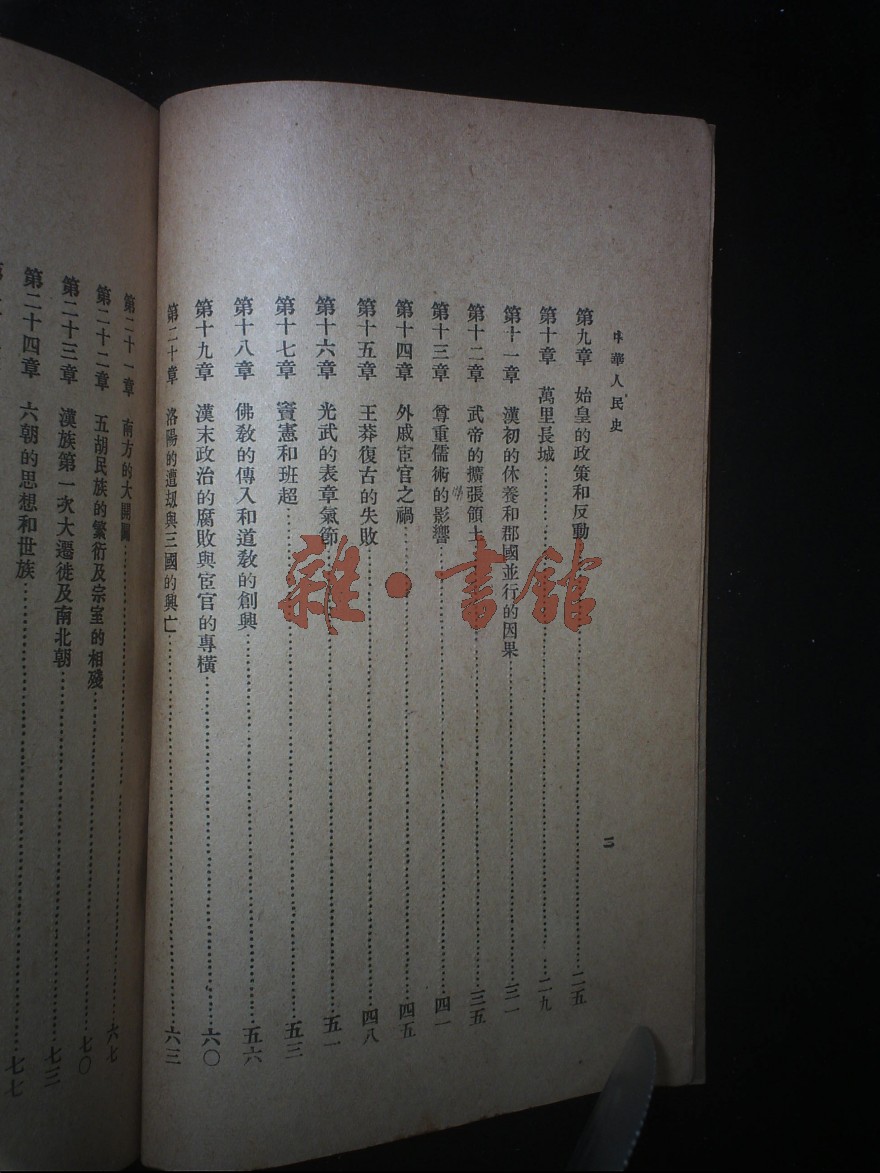 中華人民史
二
第九章 始皇的政策和反動……二五
第十章 萬里長城……二九
第十一章 漢初的休養和郡國並行的因果……三一
第十二章 武帝的擴張領土……三五
第十三章 尊重儒術的影響……四一
第十四章 外戚宦官之禍……四五
第十五章 王莽復古的失敗……四八
第十六章 光武的表章氣節……五一
第十七章 竇憲和班超……五三
第十八章 佛教的傳入和道教的創興……五六
第十九章 漢末政治的腐敗與宦官的專橫……六〇
第二十章 洛陽的遭刼與三國的興亡……六三
第二十一章 南方的大開闢……六七
第二十二章 五胡民族的繁衍及宗室的相殘……七〇
第二十三章 漢族第一次大遷徙及南北朝……七三
第二十四章 六朝的思想和世族……七七
雜·書館